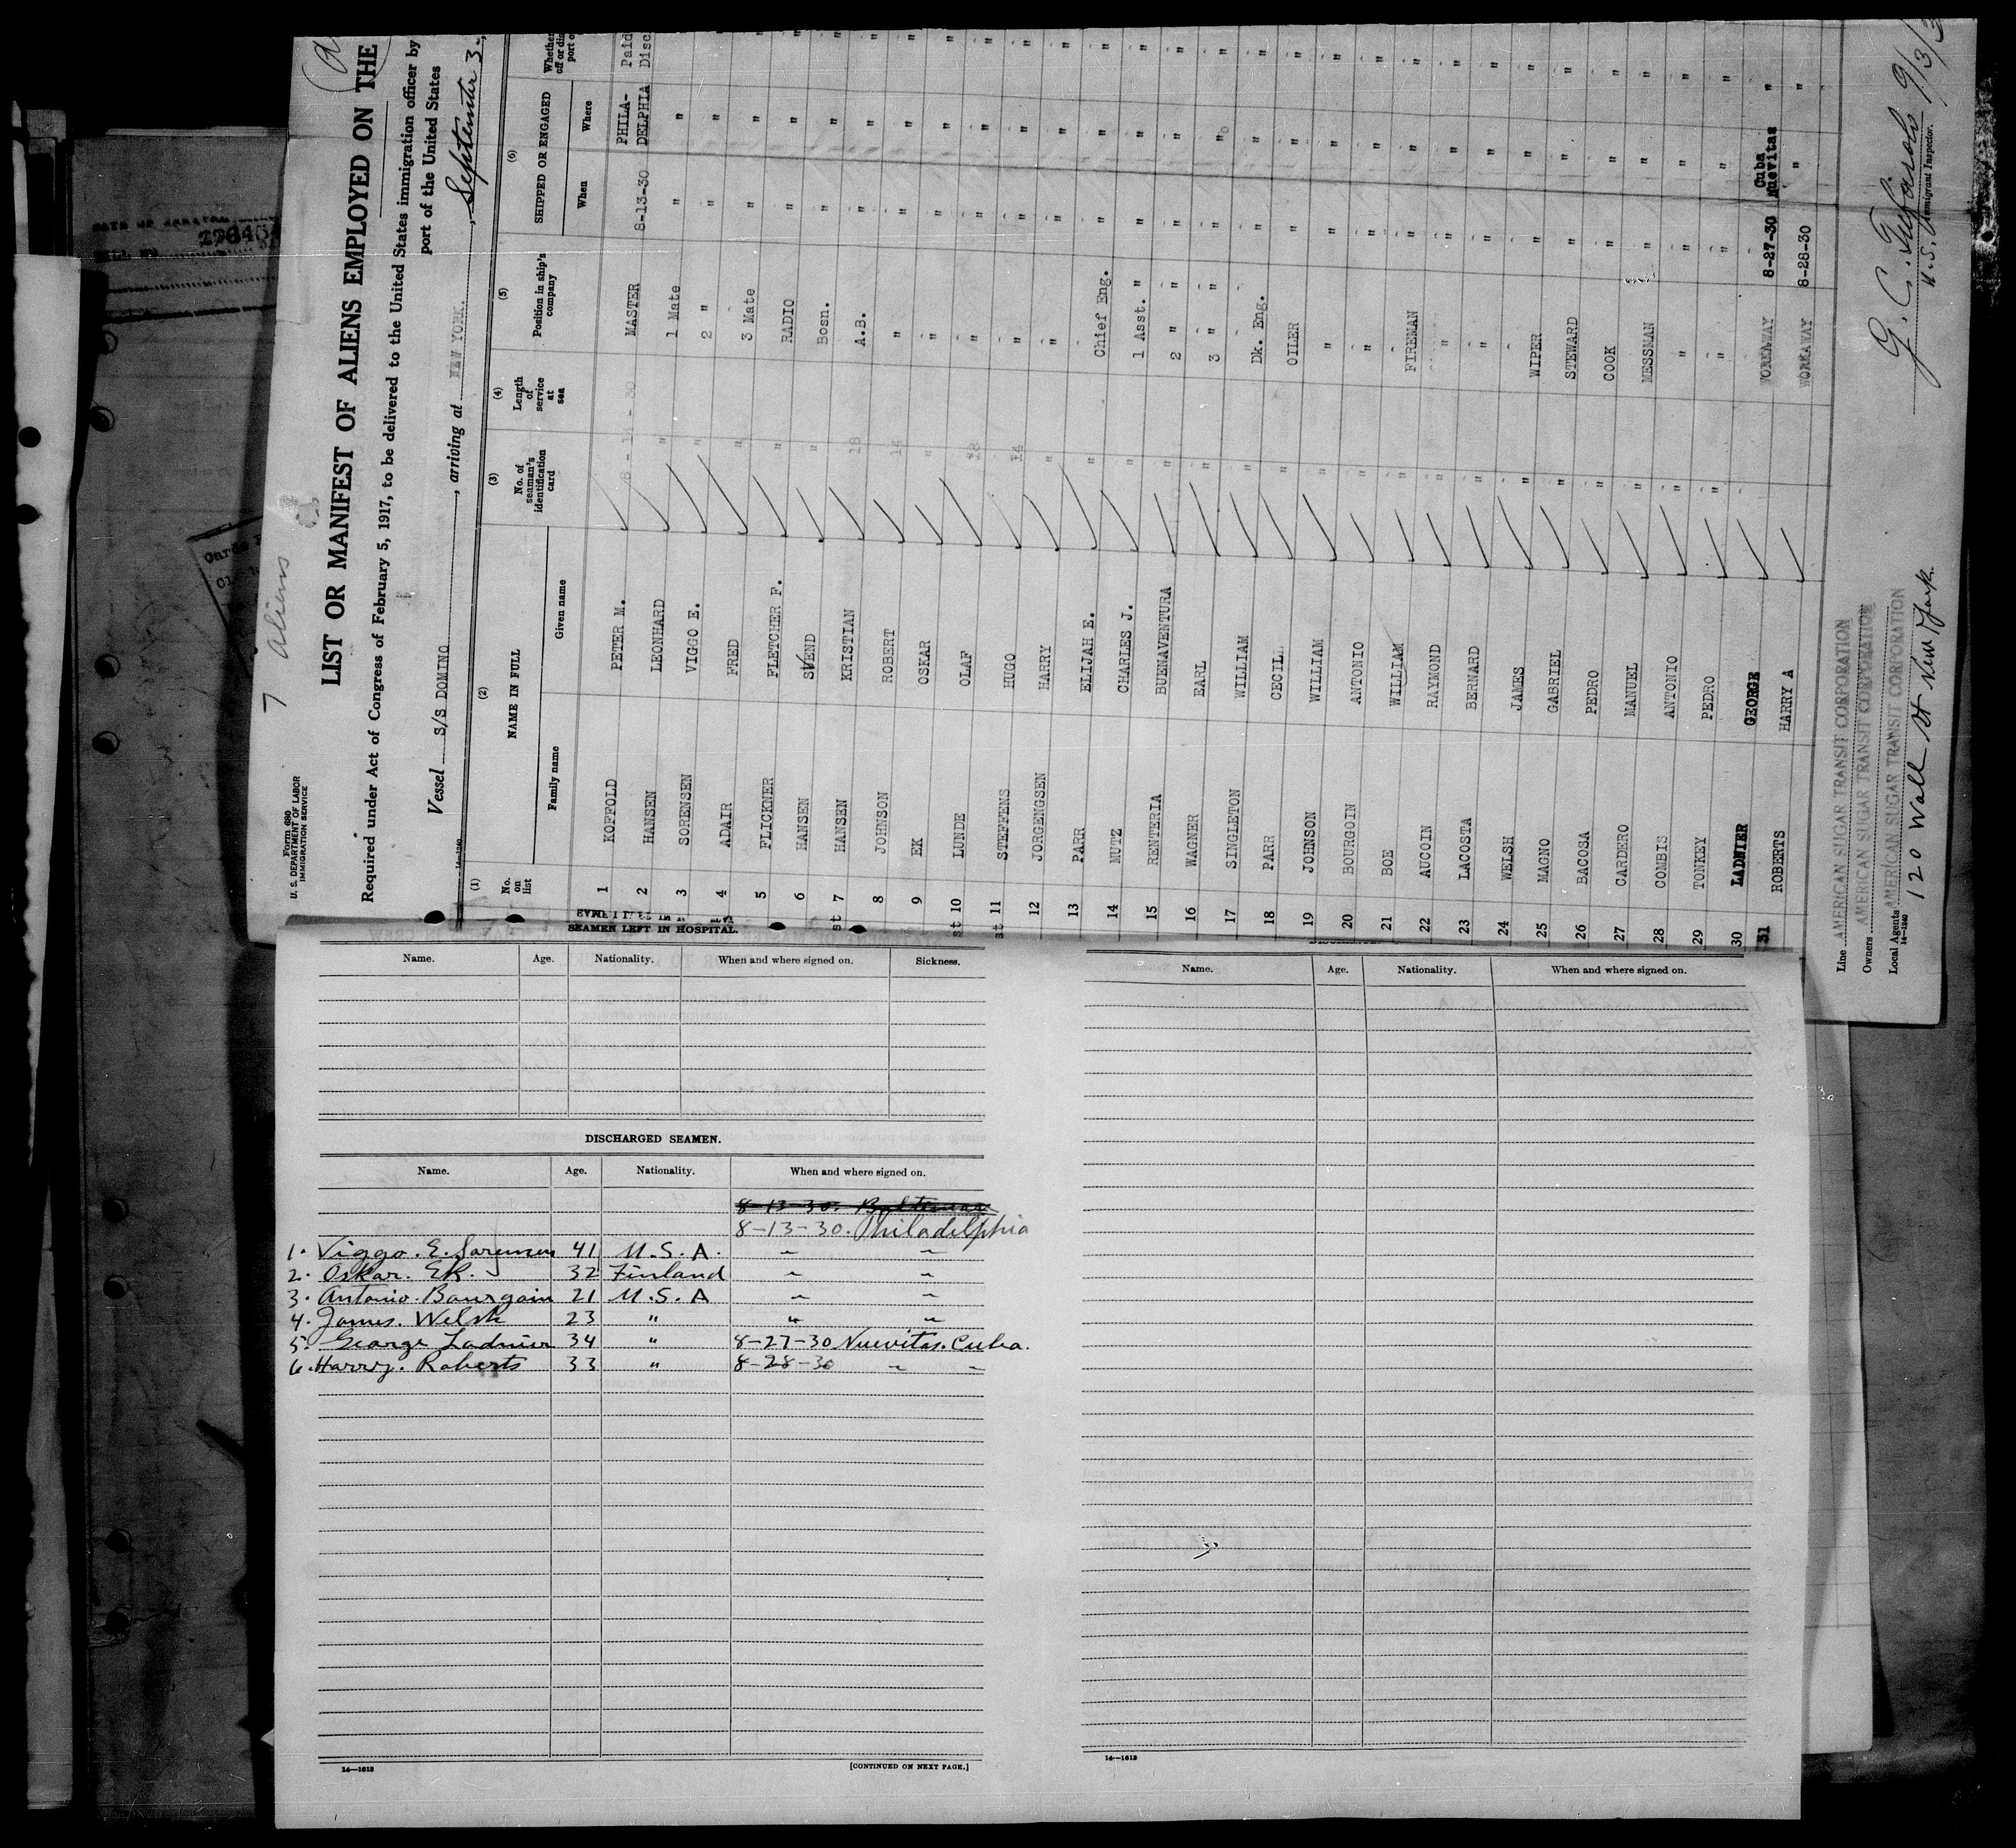 7 Aliens
Form 680
U. S. DEPARTMENT OF LABOR
IMMIGRATION SERVICE
LIST OR MANIFEST OF ALIENS EMPLOYED ON THE
Required under Act of Congress of February 5, 1917, to be delivered to the United States immigration officer by
port of the United States
Vessel S/S DOMINO, arriving at NEW YORK., September 3
14-1240
(1) (2) (3) (4) (5) (6)
No. on list NAME IN FULL No. of seaman's identification card Length of service at sea Position in ship's company SHIPPED OR ENGAGED
Family name Given name When Where
1 KOFFOLD PETER M. MASTER 8-13-30 PHILA-DELPHIA Paid Disc.
2 HANSEN LEONHARD 1 Mate " " "
3 SORENSEN VIGGO E. 2 " " " "
4 ADAIR FRED 3 Mate " " "
5 FLICKNER FLETCHER F. RADIO " " "
6 HANSEN SVEND Bosn. " " "
st 7 HANSEN KRISTIAN A.B. " " "
8 JOHNSON ROBERT " " " "
9 EK OSKAR " " " "
st 10 LUNDE OLAF " " " "
st 11 STEFFENS HUGO " " " "
12 JORGENGSEN HARRY " " " "
13 PARR ELIJAH E. Chief Eng. " " "
14 MUTZ CHARLES J. 1 Asst. " " " "
15 RENTERIA BUENAVENTURA 2 " " " " "
16 WAGNER EARL 3 " " " " "
17 SINGLETON WILLIAM Dk. Eng. " " "
18 PARR CECIL OILER " " "
19 JOHNSON WILLIAM " " " "
20 BOURGOIN ANTONIO " " " "
21 BOE WILLIAM FIREMAN " " "
22 AUCOIN RAYMOND " " " "
23 LACOSTA BERNARD " " " "
24 WELSH JAMES WIPER " " "
25 MAGNO GABRIEL STEWARD " " "
26 BACOSA PEDRO COOK " " "
27 CARDERO MANUEL MESSMAN " " "
28 COMBIS ANTONIO " " " "
29 TONKEY PEDRO " " " "
30 LADNIER GEORGE WORKAWAY 8-27-30 Cuba Nuevitas "
31 ROBERTS HARRY A WORKAWAY 8-28-30 " "
Line AMERICAN SUGAR TRANSIT CORPORATION
Owners AMERICAN SUGAR TRANSIT CORPORATION
Local Agents AMERICAN SUGAR TRANSIT CORPORATION
14-1240
120 Wall St New York
U.S. Immigrant Inspector.
SEAMEN LEFT IN HOSPITAL.
Name. Age. Nationality. When and where signed on. Sickness.
DISCHARGED SEAMEN.
Name. Age. Nationality. When and where signed on.
8-13-30. Baltimore
8-13-30. Philadelphia
1. Viggo. E. Sorensen 41 U.S.A. " "
2. Oskar. Ek. 32 Finland " "
3. Antonio. Bourgoin 21 U.S.A " "
4. James. Welsh 23 " " "
5. George Ladnier 34 " 8-27-30 Nuevitas. Cuba.
6. Harry. Roberts 33 " 8-28-30 " "
14—1613
[CONTINUED ON NEXT PAGE.]
Name. Age. Nationality. When and where signed on.
14—1613